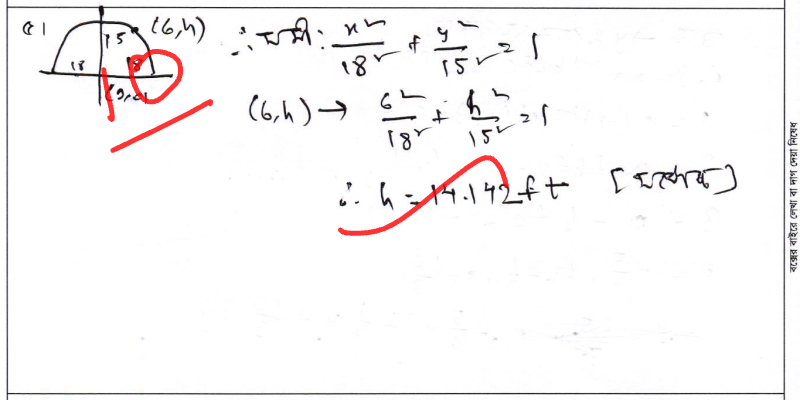 (6,h)
15
18 18
(0,0)
∴ সমী: x²/18² + y²/15² = 1
(6,h) → 6²/18² + h²/15² = 1
∴ h = 14.142 ft
বক্সের বাইরে লেখা বা দাগ দেয়া নিষেধ